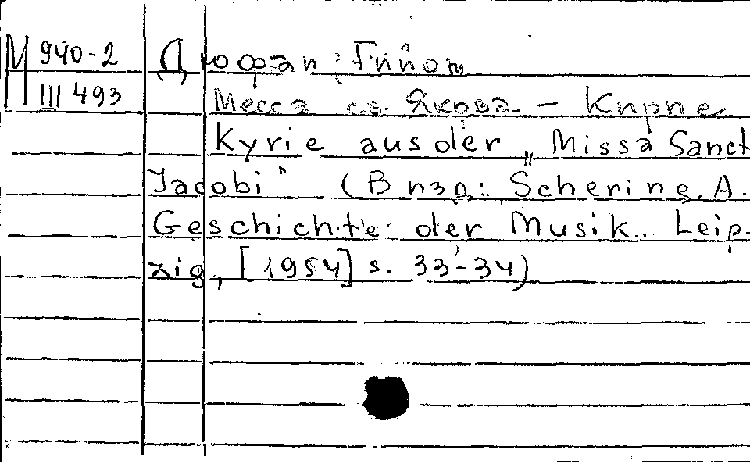 М 940-2 Дюфаи, Гийом
III 493 Месса св. Якова – Кирие
Kyrie aus der „Missa Sanct
Jacobi" (В изд: Schering A.
Geschichte der Musik.. Leip-
zig, [1954] s. 33-34)